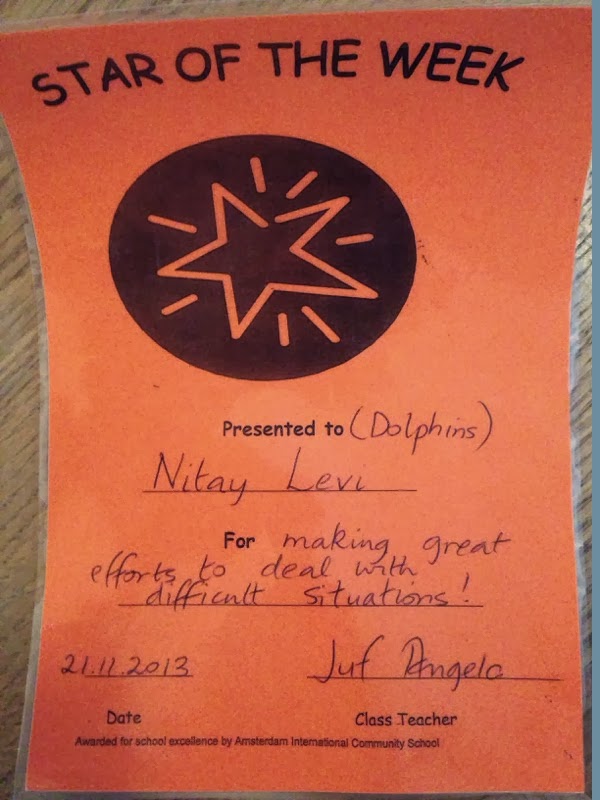 STAR OF THE WEEK
Presented to (Dolphins)
Nitay Levi
For making great
efforts to deal with
difficult situations!
21.11.2013 Juf Angela
Date Class Teacher
Awarded for school excellence by Amsterdam International Community School